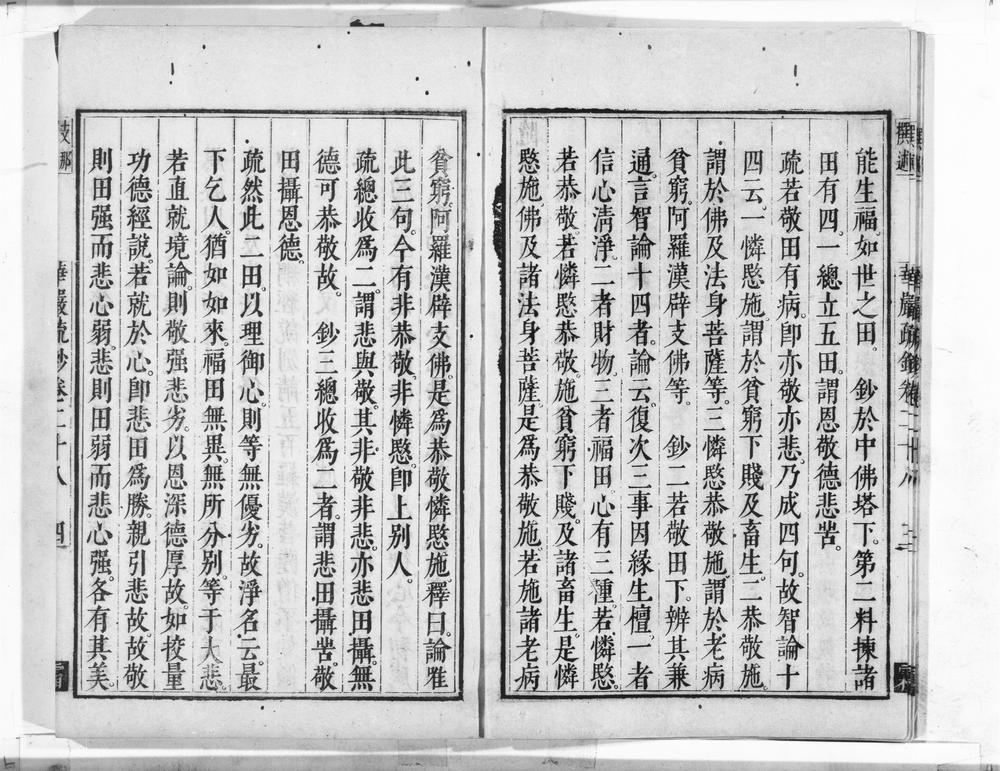 能生福。如世之田。　鈔於中佛塔下。第二料揀諸
田有四。一總立五田。謂恩敬德悲苦。
疏若敬田有病。卽亦敬亦悲。乃成四句。故智論十
四云。一憐愍施。謂於貧窮下賤及畜生。二恭敬施。
謂於佛及法身菩薩等。三憐愍恭敬施。謂於老病
貧窮。阿羅漢辟支佛等。　鈔二若敬田下。辨其兼
通。言智論十四者。論云。復次三事因緣生檀。一者
信心淸淨。二者財物。三者福田。心有三種。若憐愍。
若恭敬。若憐愍恭敬。施貧窮下賤。及諸畜生。是憐
愍施。佛及諸法身菩薩。是爲恭敬施。若施諸老病
貧窮。阿羅漢辟支佛。是爲恭敬憐愍施。釋曰。論雅
此三句。今有非恭敬。非憐愍。卽上别人。
疏總收爲二。謂悲與敬。其非敬非悲。亦悲田攝。無
德可恭敬故。　鈔三總收爲二者。謂悲田攝苦。敬
田攝恩德。
疏然此二田。以理御心。則等無優劣。故淨名云。最
下乞人。猶如如來。福田無異。無所分别。等于大悲。
若直就境論。則敬强悲劣。以恩深德厚故。如挍量
功德經說。若就於心。卽悲田爲勝。親引悲故。故敬
則田强而悲心弱。悲則田弱而悲心强。各有其美。
華嚴疏鈔卷二十八　四
撰述
華嚴疏鈔卷二十八
支那